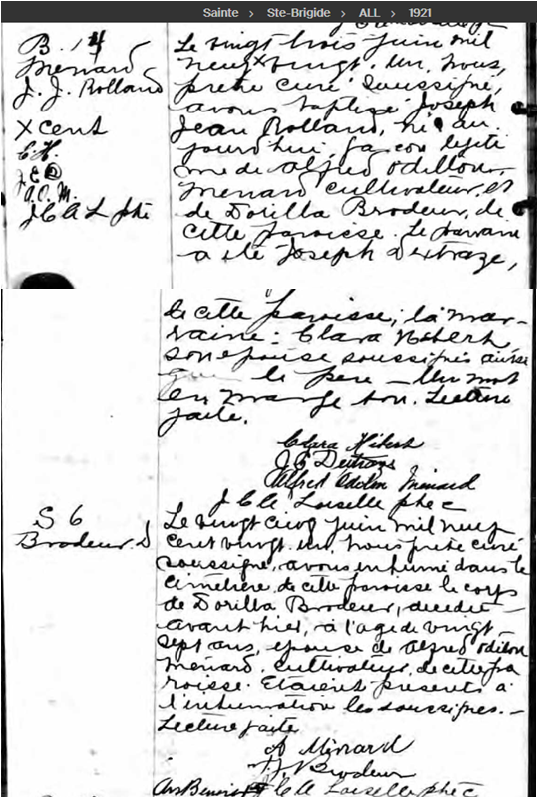 Sainte > Ste-Brigide > ALL > 1921
B. 14
Menard
J. J. Rolland
x cent
C. H.
J. E. D
A. O. M.
J C A L ptre
Le vingt trois juin mil
neuf x vingt. un, nous,
prêtre curé soussigné,
avons baptisé Joseph
Jean Rolland, né au
jourd'hui, fils légiti
me de Alfred Odillon
Menard cultivateur, et
de Dorilla Brodeur, de
cette paroisse. Le parrain
a été Joseph Dextraze,
de cette paroisse; la mar-
raine: Clara Hébert,
son épouse soussignés ainsi
que le père — Un mot
en marge bon. Lecture
faite.
Clara Hébert
J. E Dextraze
Alfred Odilon Ménard
J. C. A. Loiselle ptre c
S 6
Brodeur. D
Le vingt cinq juin mil neuf
cent vingt. un, nous prêtre curé
soussigné, avons inhumé dans le
cimetière de cette paroisse le corps
de Dorilla Brodeur, décédée
avant hier, à l'âge de vingt
sept ans, épouse de Alfred Odilon
Menard, cultivateur, de cette pa
roisse. Etaient présents à
l'inhumation les soussignés. —
Lecture faite
A Ménard
Brodeur
J. C. A. Loiselle ptre c